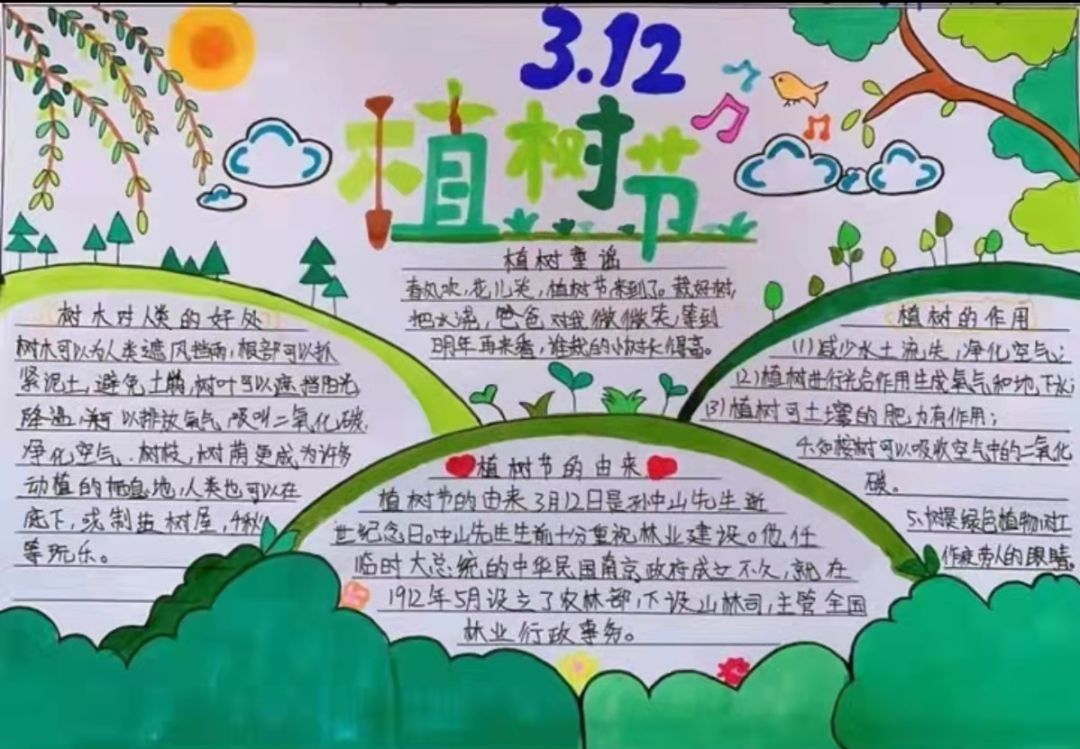 3.12
植树节
植树童谣
春风吹,花儿笑,植树节来到了。栽好树,
把水浇,爸爸对我微微笑,等到
明年再来看,准我的小树长得高。
树木对人类的好处
树木可以为人类遮风挡雨,根部可以抓
紧泥土,避免土崩,树叶可以遮挡阳光
降温,可以排放氧气吸收二氧化碳,
净化空气.树枝,树荫更成为许多
动植的栖息地,人类也可以在
底下,或制造树屋,秋
等玩乐。
植树节的由来
植树节的由来3月12日是孙中山先生逝
世纪念日。中山先生生前十分重视林业建设。他任
临时大总统的中华民国南京政府成立不久,就在
1912年5月设立了农林部,下设山林司,主管全国
林业行政事务。
植树的作用
(1)减少水土流失,净化空气;
(2)植树进行光合作用生成氧气和地下水;
(3)植树可土壤的肥力有作用;
4.如桉树可以吸收空气中的二氧化
碳。
5、树是绿色植物,对工
作疲劳人的眼睛。